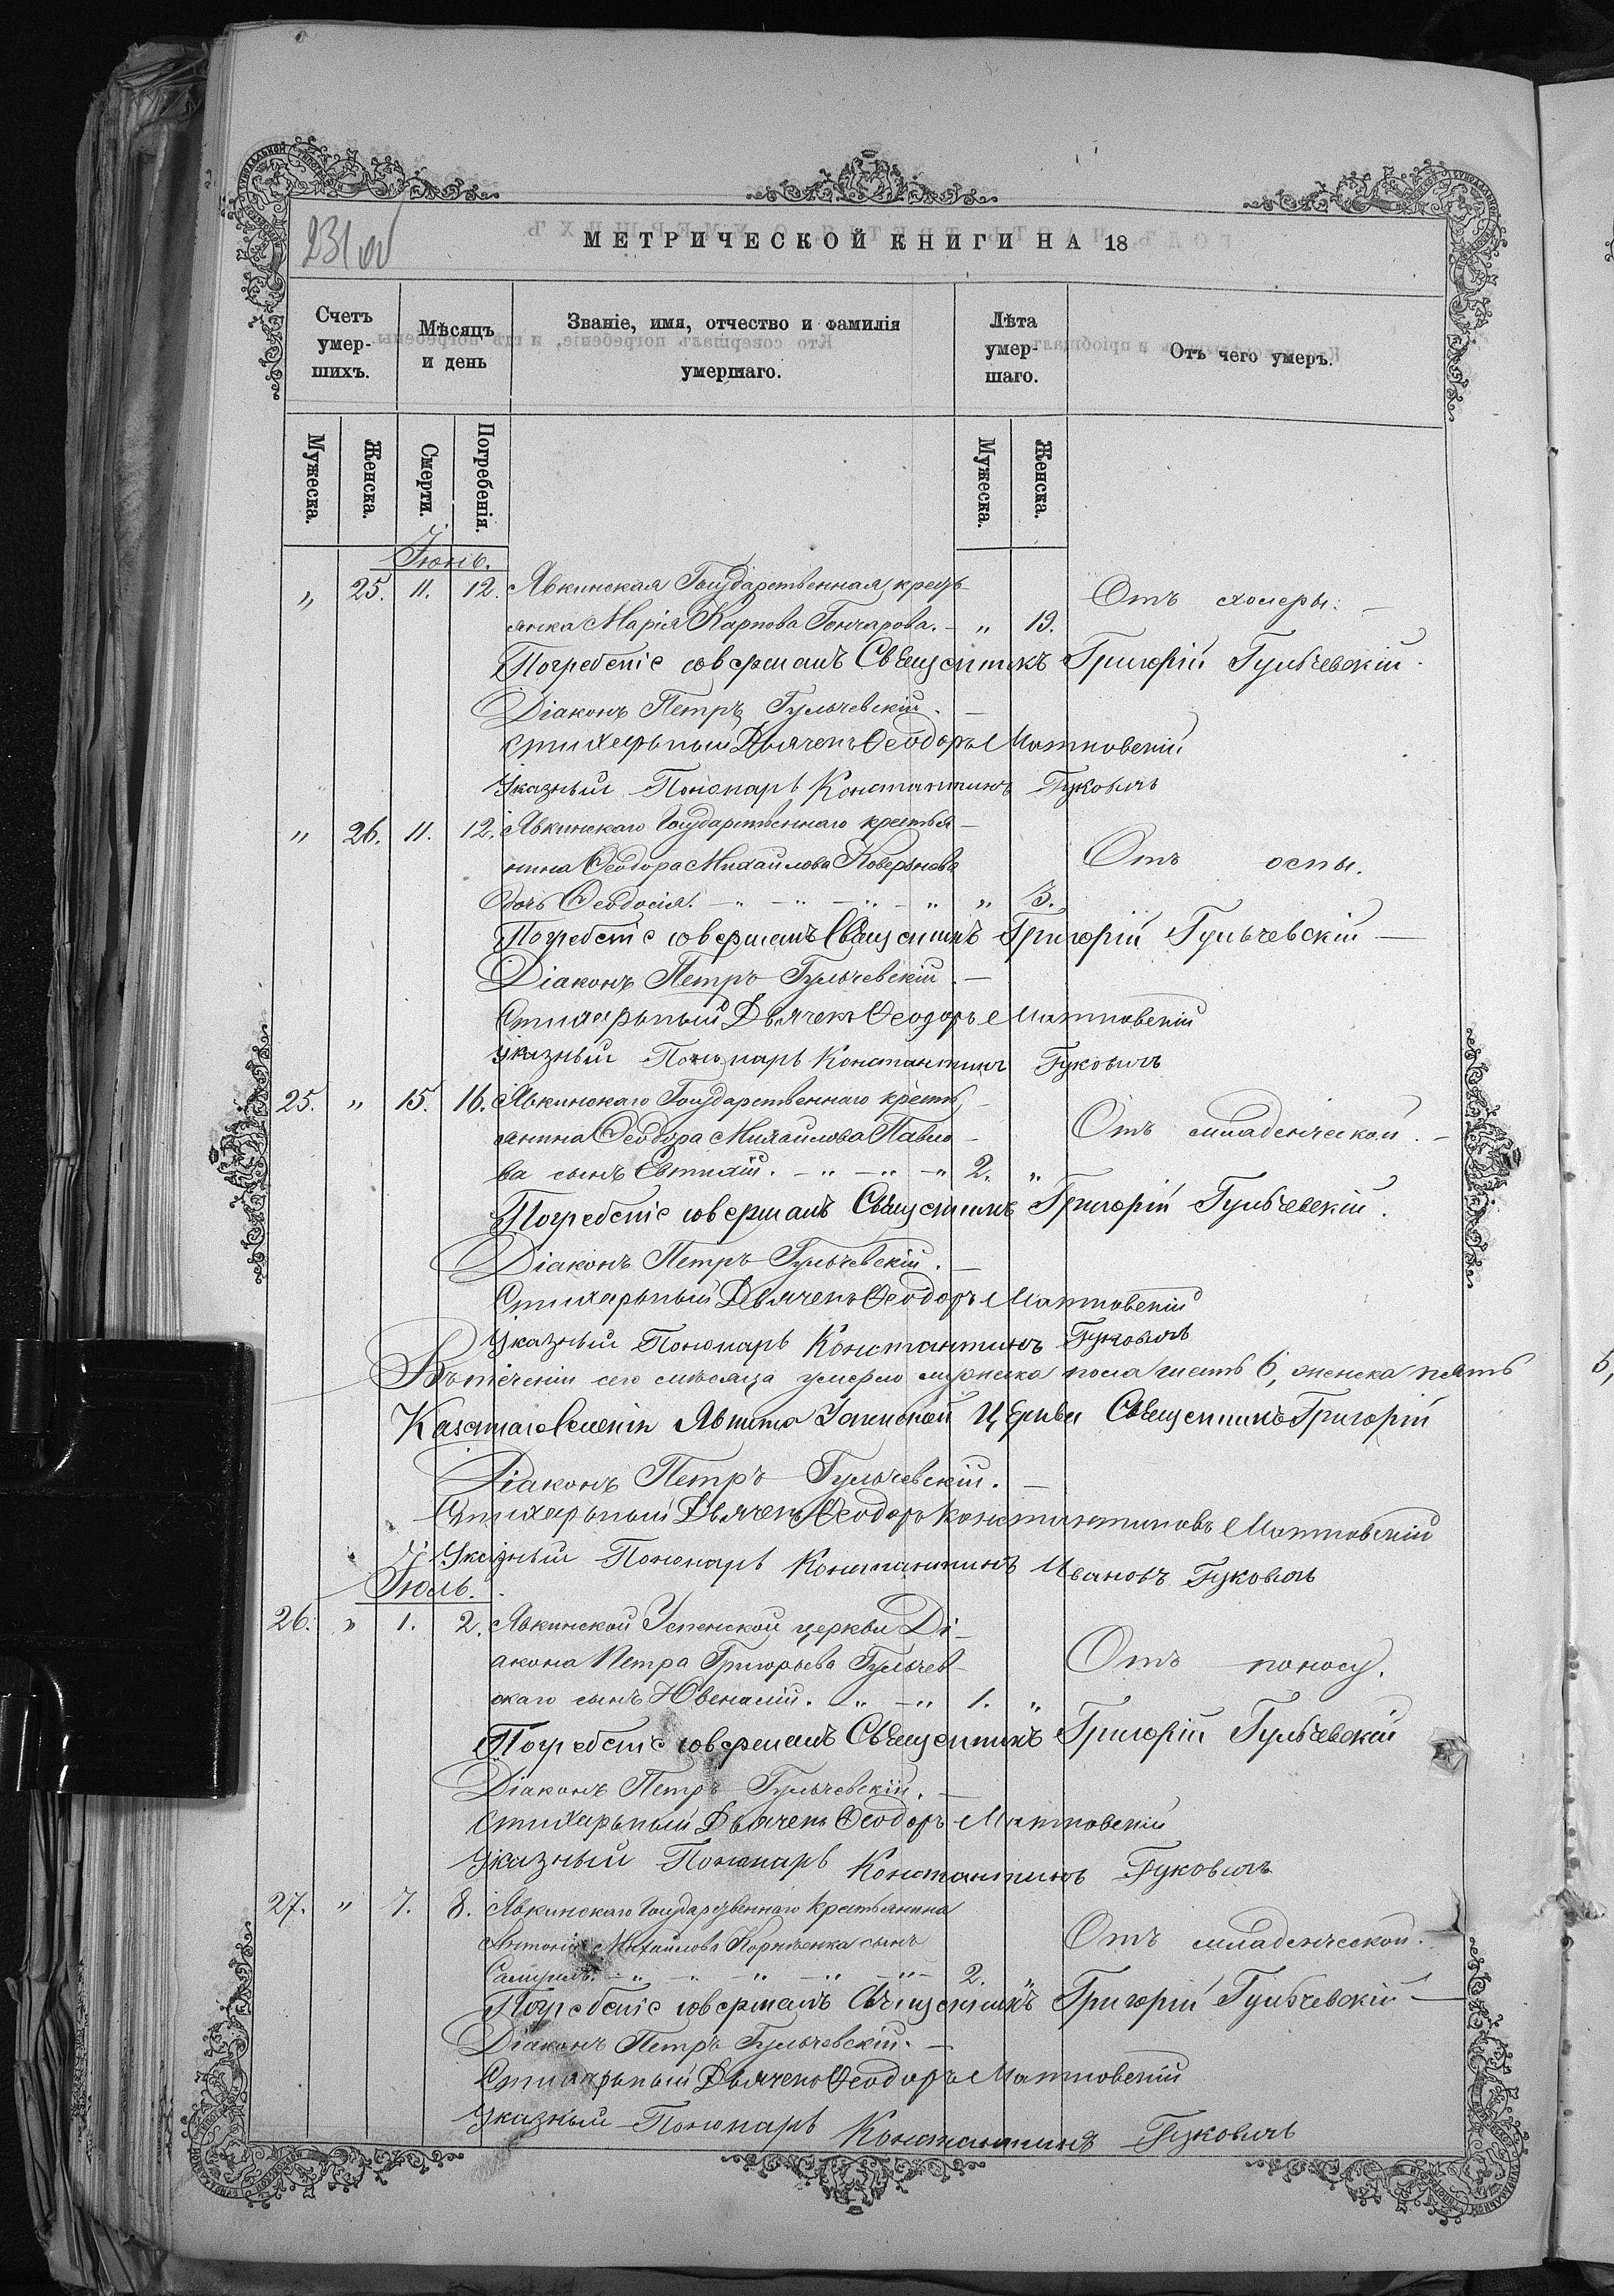 231 об
МЕТРИЧЕСКОЙ КНИГИ НА 18
Счетъ умер- шихъ.
Мѣсяцъ и день
Званіе, имя, отчество и фамилія умершаго.
Лѣта умер- шаго.
Отъ чего умеръ.
Мужеска.
Женска.
Смерти.
Погребенія.
Мужеска.
Женска.
Іюнь.
„ 25. 11. 12. Явкинская Государственная кресть-
янка Марія Карпова Гончарова. — „ 19. Отъ холеры. —
Погребеніе совершалъ Священникъ Григорій Гульчевскій.
Діаконъ Петръ Гульчевскій. —
Стихарный Дьячекъ Ѳеодоръ Матковскій
Указный Пономарь Константинъ Гуковичъ
„ 26. 11. 12. Явкинскаго Государственнаго крестья-
нина Ѳеодора Михайлова Отъ оспы.
дочь Ѳеодосія. — „ — „ — „ — „ „ 3.
Погребеніе совершалъ Священникъ Григорій Гульчевскій —
Діаконъ Петръ Гульчевскій. —
Стихарный Дьячекъ Ѳеодоръ Матковскій
Указный Пономарь Константинъ Гуковичъ
25. „ 15. 16. Явкинскаго Государственнаго кресть-
янина Ѳеодора Михайлова Павло- Отъ младенческой. —
ва сынъ Евтихій. — „ — „ — „ 2. „
Погребеніе совершалъ Священникъ Григорій Гульчевскій.
Діаконъ Петръ Гульчевскій. —
Стихарный Дьячекъ Ѳеодоръ Матковскій
Указный Пономарь Константинъ Гуковичъ
Въ теченіи сего мѣсяца умерло мужеска пола шесть 6, женска пять 5,
Явкино Успенской Церкви Священникъ Григорій
Діаконъ Петръ Гульчевскій. —
Стихарный Дьячекъ Ѳеодоръ Константиновъ Матковскій
Указный Пономарь Константинъ Ивановъ Гуковичъ
Іюль.
26. „ 1. 2. Явкинской Успенской церкви Ді-
акона Петра Григорьева Гульчев- Отъ поносу.
скаго сынъ Ювеналій. „ — „ 1. „
Погребеніе совершалъ Священникъ Григорій Гульчевскій
Діаконъ Петръ Гульчевскій. —
Стихарный Дьячекъ Ѳеодоръ Матковскій
Указный Пономарь Константинъ Гуковичъ
27. „ 7. 8. Явкинскаго Государственнаго Крестьянина
Антонія Михайлова Корнѣенка сынъ Отъ младенческой.
Самуилъ. — „ — „ — „ — „ — „ — 2. „
Погребеніе совершалъ Священникъ Григорій Гульчевскій —
Діаконъ Петръ Гульчевскій. —
Стихарный Дьячекъ Ѳеодоръ Матковскій
Указный Пономарь Константинъ Гуковичъ